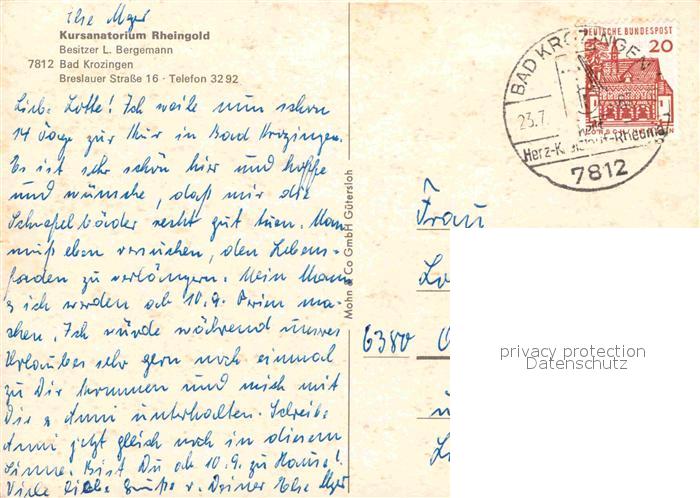 Else Mger
Kursanatorium Rheingold
Besitzer L. Bergemann
7812 Bad Krozingen
Breslauer Straße 16 · Telefon 32 92
Liebe Lotte! Ich weile nun schon
14 Tage zur Kur in Bad Krozingen.
Es ist sehr schön hier und hoffe
und wünsche, daß mir die
Schwefelbäder recht gut tuen. Man
muß eben versuchen, den Lebens-
faden zu verlängern. Mein Mann
& ich werden ab 10.9. Ferien ma-
chen. Ich würde während unseres
Urlaubes sehr gern noch einmal
zu Dir kommen und mich mit
Dir & Anni unterhalten. Schreib.
Anni jetzt gleich noch in diesem
Sinne. Bist Du ab 10.9. zu Hause?
Viele liebe Grüße v. Deiner Else Mger
Mohn & Co GmbH Gütersloh
DEUTSCHE BUNDESPOST
20
BAD KROZINGEN
23.7.
Herz-Kreislauf-Rheuma
7812
Frau
Lo
6380
privacy protection
Datenschutz